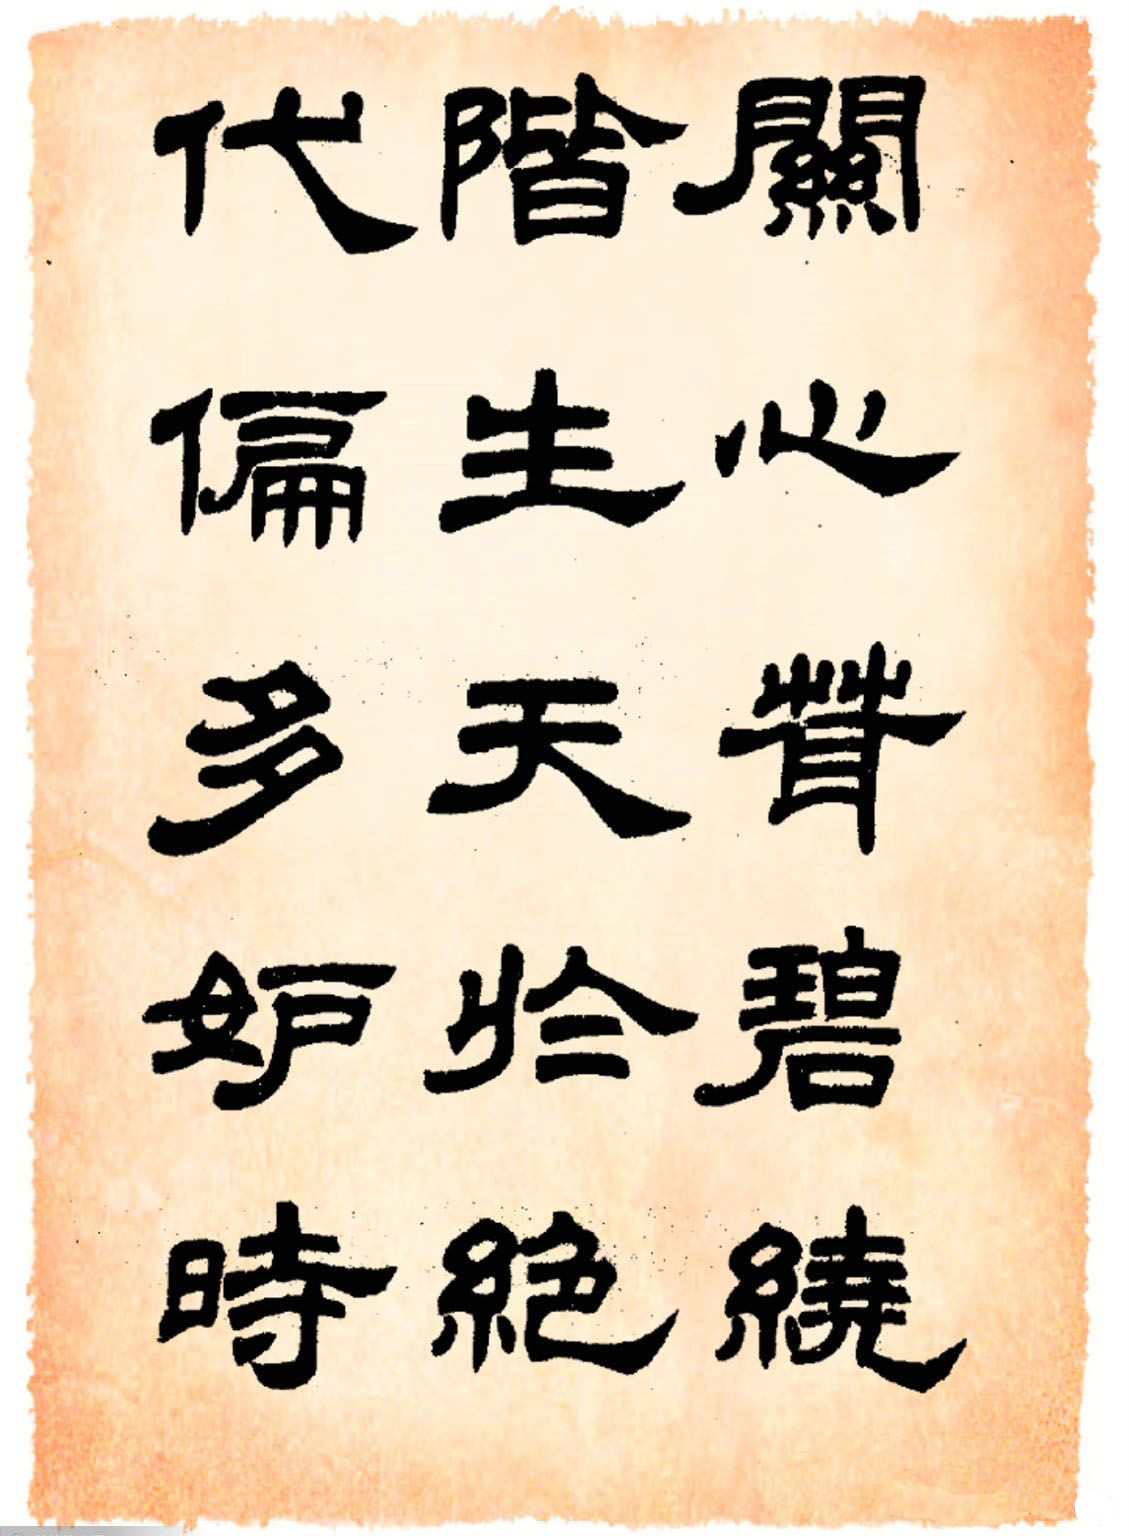 關心碧繞
階生天於絕
代偏多妒時